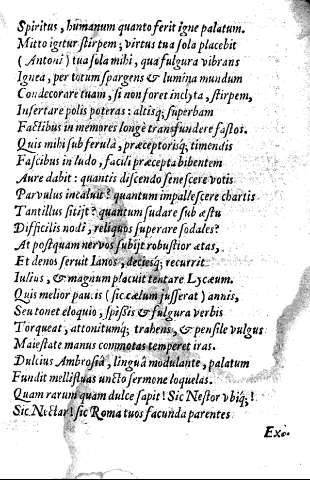 Spiritus, humanum quanto ferit igne palatum.
Mitto igitur stirpem; virtus tua sola placebit
(Antoni) tua sola mihi, qua fulgura vibrans
Ignea, per totum spargens & lumina mundum
Condecorare tuam, si non foret inclyta, stirpem,
Insertare polis poteras: altisq; superbam
Factibus in memores longè transfundere fastos.
Quis mihi sub ferulâ, præceptorisq; timendis
Fascibus in ludo, facili præcepta bibentem
Aure dabit: quantis discendo senescere votis
Parvulus incaluit? quantum impallescere chartis
Tantillus sitijt? quantum sudare sub æstu
Difficilis nodi, reliquos superare sodales?
At postquam nervos subijt robustior ætas,
Et denos seruit Ianos, deciesq; recurrit
Iulius, & magnum placuit tentare Lycæum.
Quis melior paucis (sic cælum jusserat) annis,
Seu tonet eloquio, spissis & fulgura verbis
Torqueat, attonitumq; trahens, & pensile vulgus
Maiestate manus commotas temperet iras.
Dulcius Ambrosiâ, linguâ modulante, palatum
Fundit mellifluas uncto sermone loquelas.
Quam rarum quam dulce sapit! Sic Nestor vbiq;!
Sic Nectar! sic Roma tuos facunda parentes
Exc.